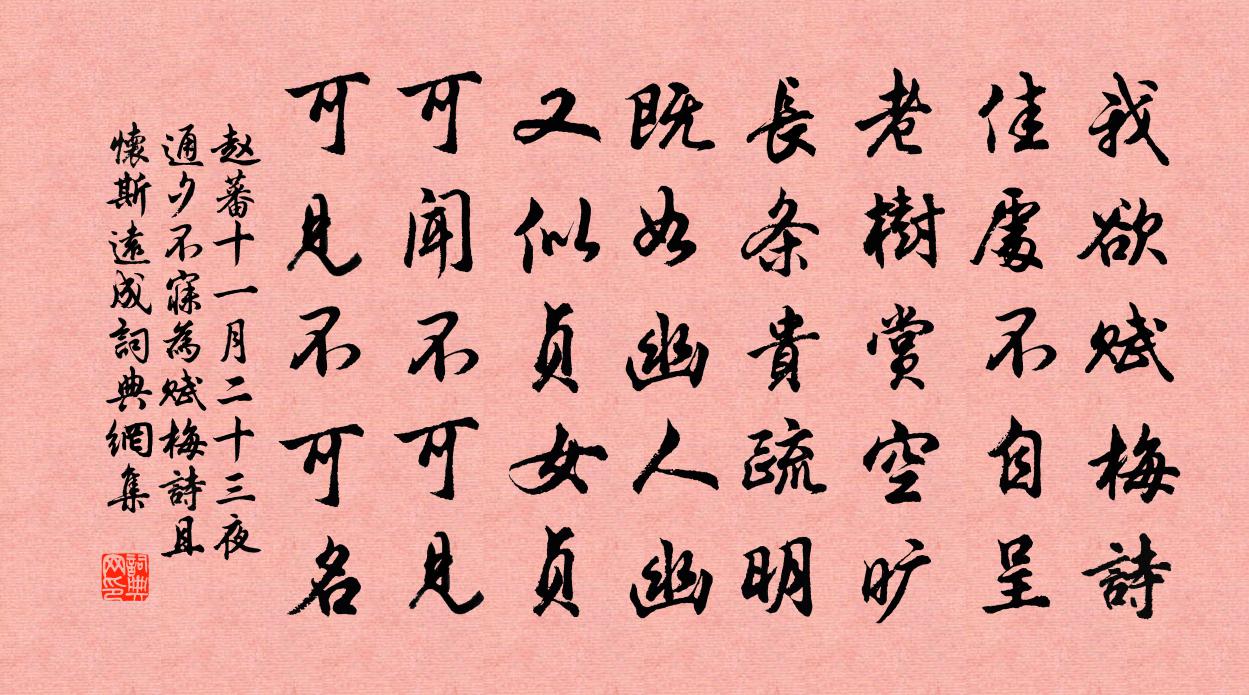 我欲赋梅詩
佳處不自呈
老樹赏空旷
長条貴疏明
既如幽人幽
又似贞女贞
可闻不可見
可見不可名
赵蕃十一月二十三夜
通夕不寐為赋梅詩且
懷斯遠成詞典網集
詞典
网印